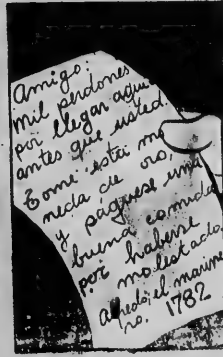 Amigo:
mil perdones
por llegar aquí
antes que usted.
Tome esta mo
neda de oro,
y páguese una
buena comida
por haberse
molestado.
el marine
ro. 1782